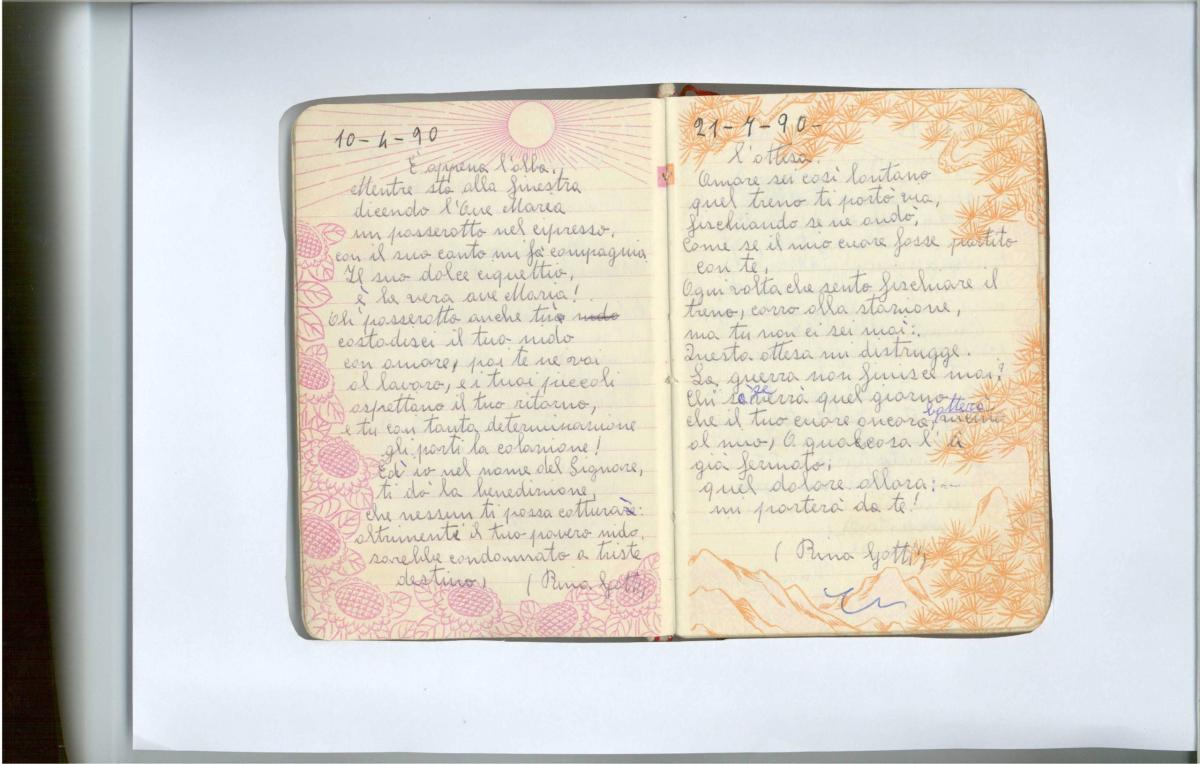 10-4-90
È appena l'alba.
Mentre sto alla finestra
dicendo l'Ave Maria
un passerotto nel cipresso,
con il suo canto mi fà compagnia
Il suo dolce ciguettio,
è la vera ave Maria!
Oh passerotto anche tu nido
costodisci il tuo nido
con amore, poi te ne vai
al lavoro, e i tuoi piccoli
aspettano il tuo ritorno,
e tu con tanta determinazione
gli porti la colazione!
Ed io nel nome del Signore,
ti dò la benedizione,
che nessun ti possa catturare:
altrimente il tuo povero nido.
sarebbe condannato a triste
destino, (Rina Gotti)
21-4-90-
l'attesa.
Amore sei così lontano
quel treno ti portò via,
fischiando se ne andò,
come se il mio cuore fosse partito
con te,
Ogni volta che sento fischiare il
treno, corro alla stazione,
ma tu non ci sei mai:.
Questa attesa mi distrugge.
La guerra non finisce mai?
Chi sà se verrà quel giorno
che il tuo cuore ancora, batterà
al mio, O qualcosa l'à
già fermato,
quel dolore allora:--
mi porterà da te!
(Rina Gotti)